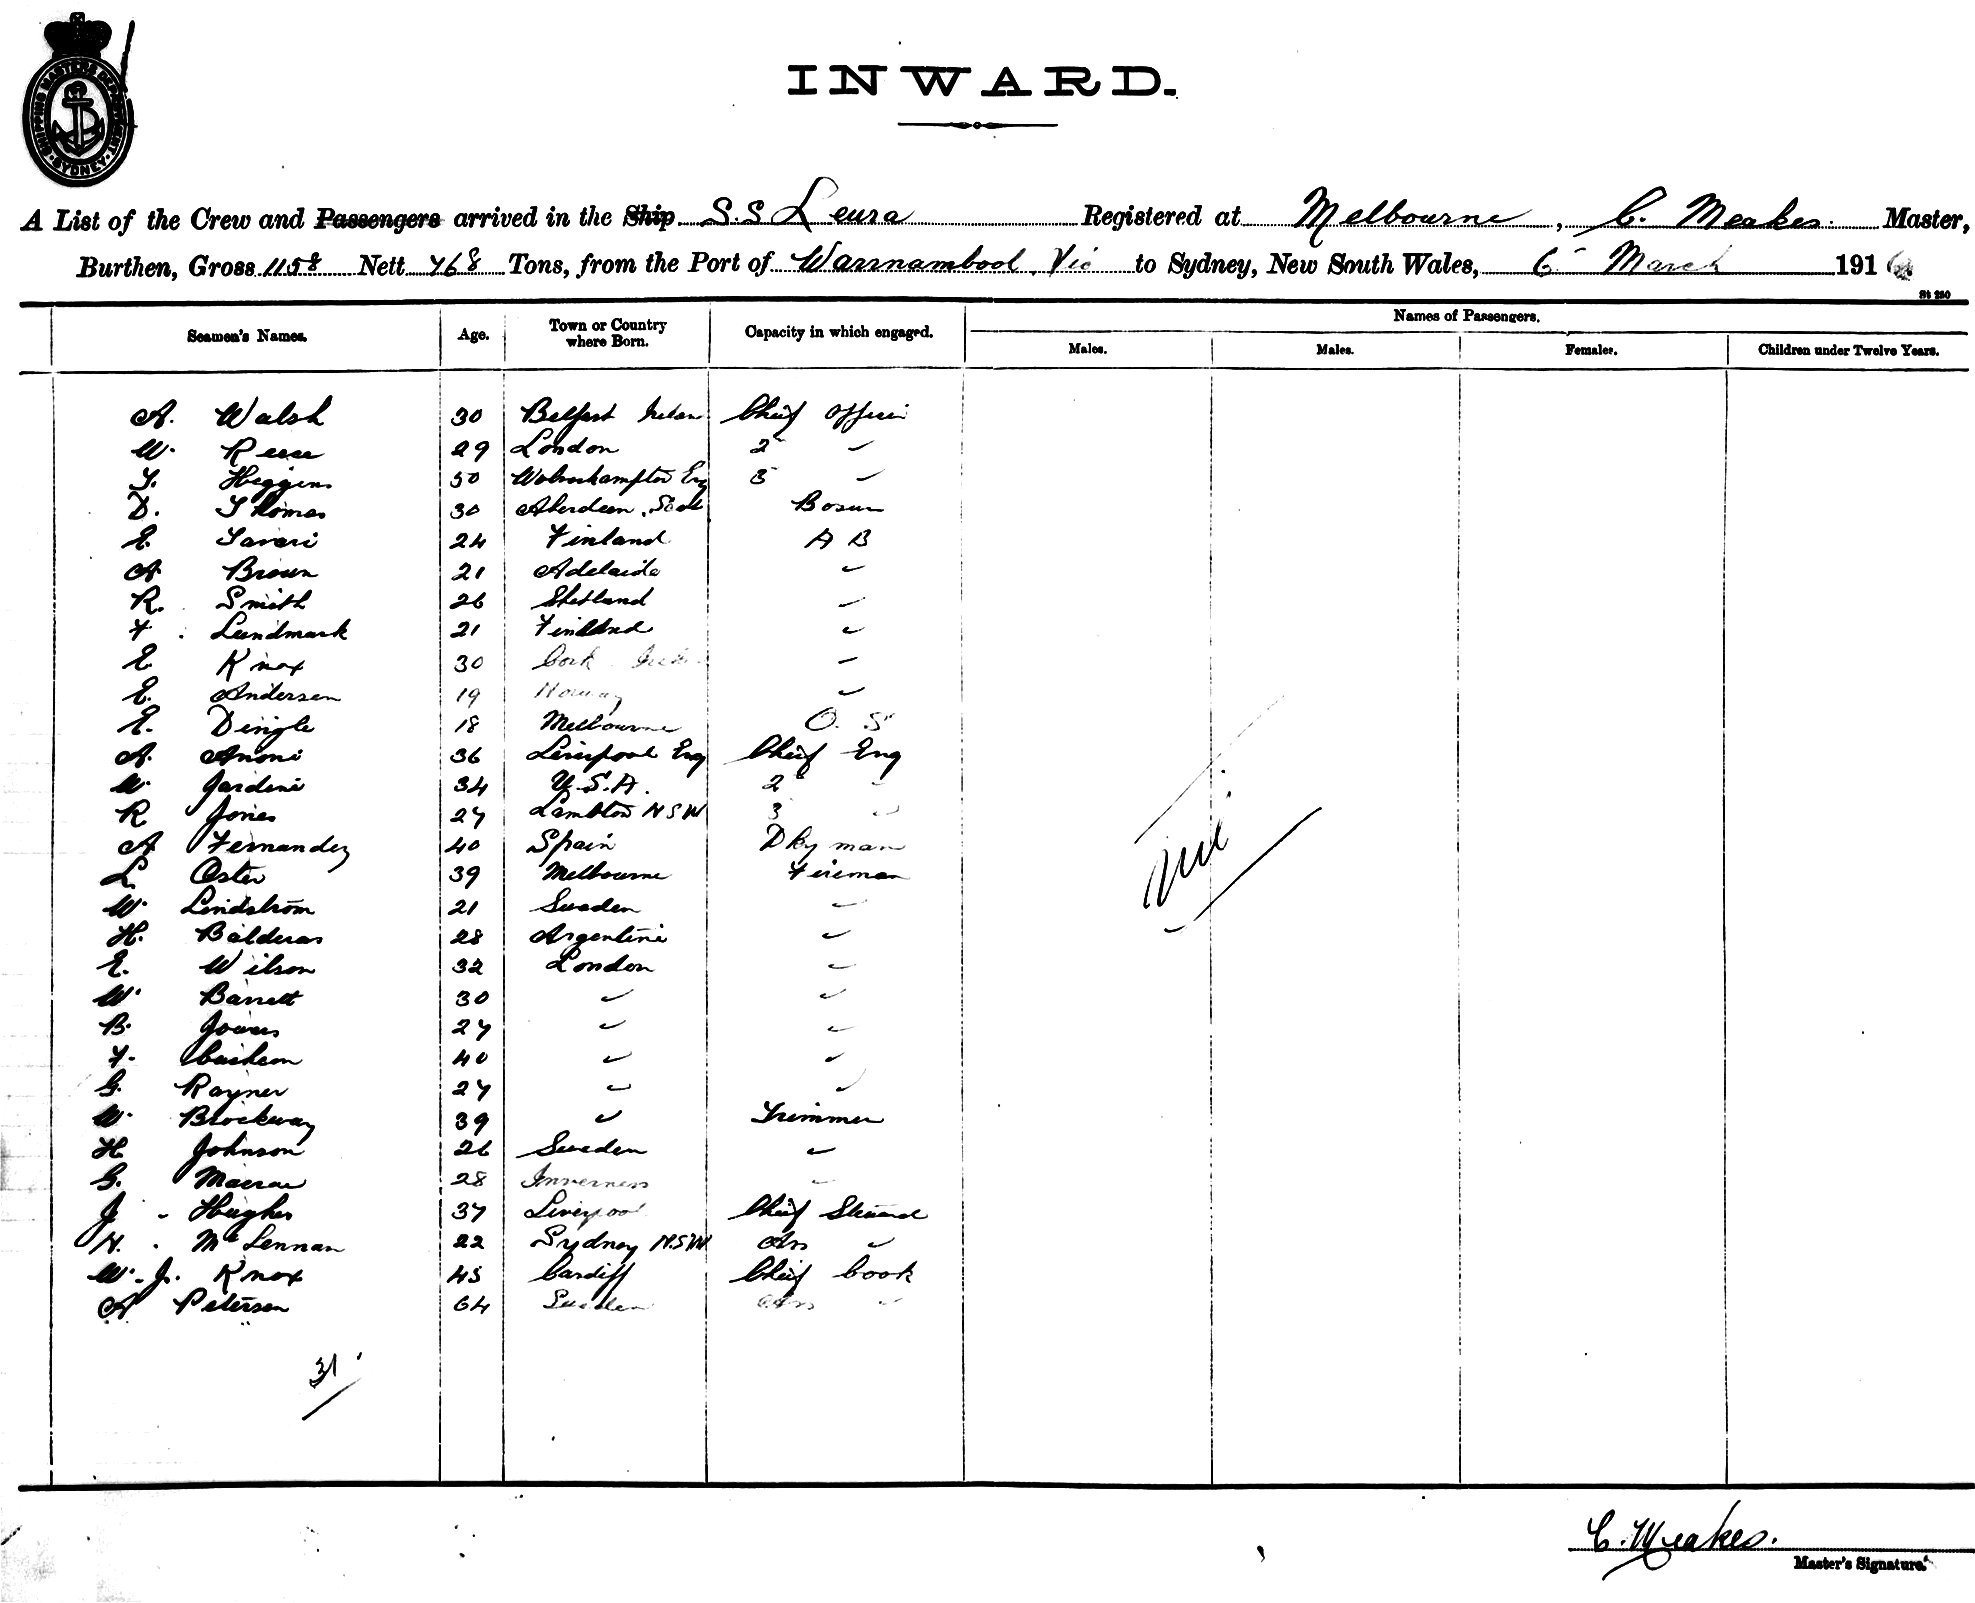 SHIPPING MASTERS DEPARTMENT SYDNEY
INWARD.
A List of the Crew and Passengers arrived in the Ship S.S Leura Registered at Melbourne, C. Meakes. Master,
Burthen, Gross 1158 Nett 768 Tons, from the Port of Warrnambool, Vic to Sydney, New South Wales, 6 March 191
St 250
Seamen's Names. Age. Town or Country where Born. Capacity in which engaged. Names of Passengers.
Males. Males. Females. Children under Twelve Years.
A. Walsh 30 Belfast Chief Officer
W. Reese 29 London 2 "
T. Higgins 50 Wolverhampton Eng 3 "
D. Thomas 30 Aberdeen, Scot Bosun
E. Savari 24 Finland A B
A. Brown 21 Adelaide "
R. Smith 26 Shetland "
F. Lundmark 21 Finland "
E Knox 30 Cork "
E. Andersen 19 Norway "
E. Dingle 18 Melbourne O. S
A. 36 Liverpool Eng Chief Eng
W. Jardine 34 U.S.A. 2 "
R Jones 27 Lambton N S W 3 "
A Fernandez 40 Spain Dky man
L Oster 39 Melbourne Fireman
W. Lindstrom 21 Sweden "
H. Balderas 28 Argentine "
E. Wilson 32 London "
W. Barrett 30 " "
B. 27 " "
F. 40 " "
G. Rayner 27 " "
W. Brockway 39 " Trimmer
H Johnson 26 Sweden "
G. Macrae 28 Inverness "
J. Hughes 37 Liverpool Chief Steward
N. McLennan 22 Sydney N.S.W. "
W. J. Knox 45 Cardiff Chief Cook
A Petersen 64 Sweden "
31
Nil
C. Meakes.
Master's Signature.